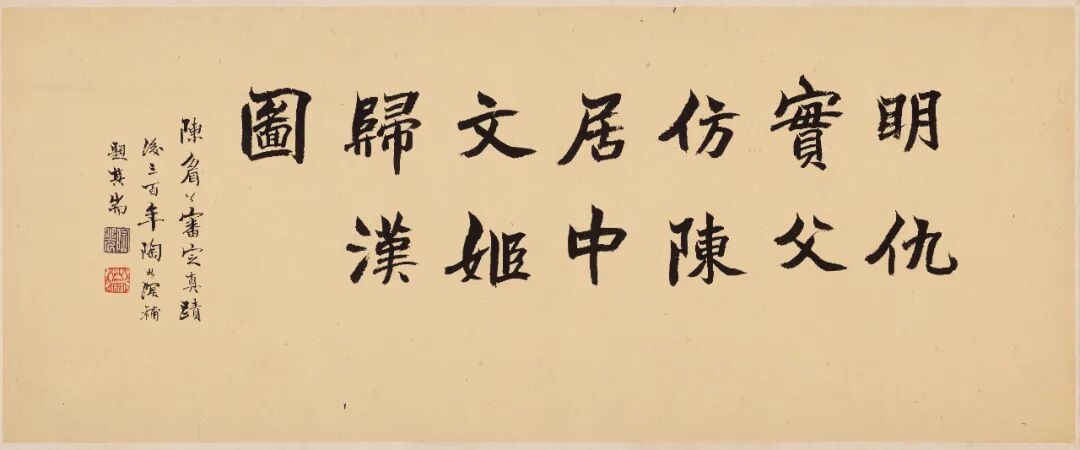 明仇
實父
仿陳
居中
文姬
歸漢
圖
陳眉公審定真蹟
後三百年陶北溟補
題其耑